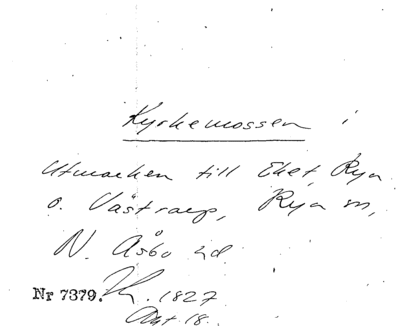 Kyrkemossen i
Utmarken till Eket, Rya
o. Västrarp, Rya sn,
N. Åsbo hd.
Nr 7379. 1827
Akt 18.